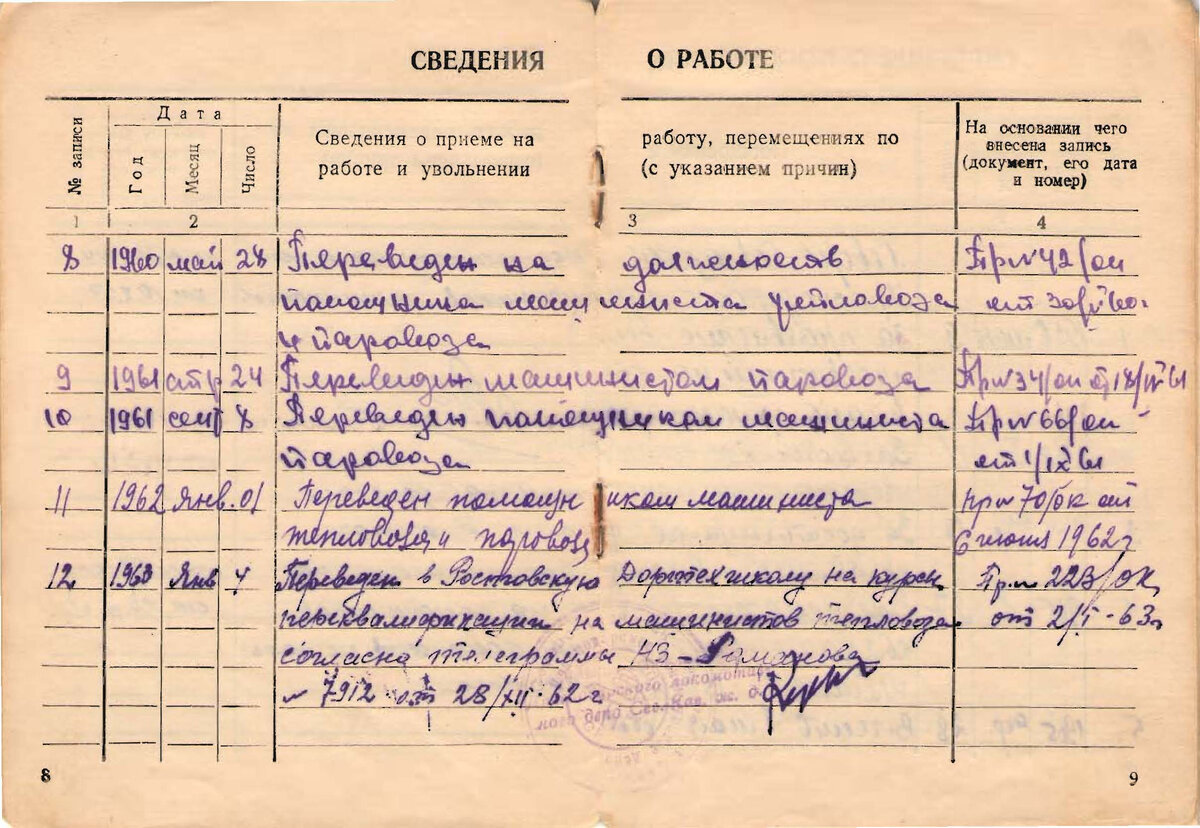 СВЕДЕНИЯ О РАБОТЕ
№ записи
Дата
Год
Месяц
Число
Сведения о приеме на работу, перемещениях по
работе и увольнении (с указанием причин)
На основании чего
внесена запись
(документ, его дата
и номер)
1 2 3 4
8 1960 май 28 Переведен на должность Пр№42/ои
помощника машиниста тепловоза от 30/V 60.
и паровоза
9 1961 апр 24 Переведен машинистом паровоза Пр№34/ои от 18/IV 61
10 1961 сент 8 Переведен помощником машиниста Пр№66/ои
паровоза от 1/IX 61
11 1962 Янв. 01 Переведен помощником машиниста пр№70/ок от
тепловоза и паровоза 6 июня 1962г
12 1963 Янв 4 Переведен в Ростовскую Дортехшколу на курсы Пр.№ 223/ОК
переквалификации на машинистов тепловоза от 2/I-63г
согласна телеграммы НЗ-Романова
№ 7912 от 28/XII-62г
локомотив
ного депо Сев.Кав. ж. д.
8
9